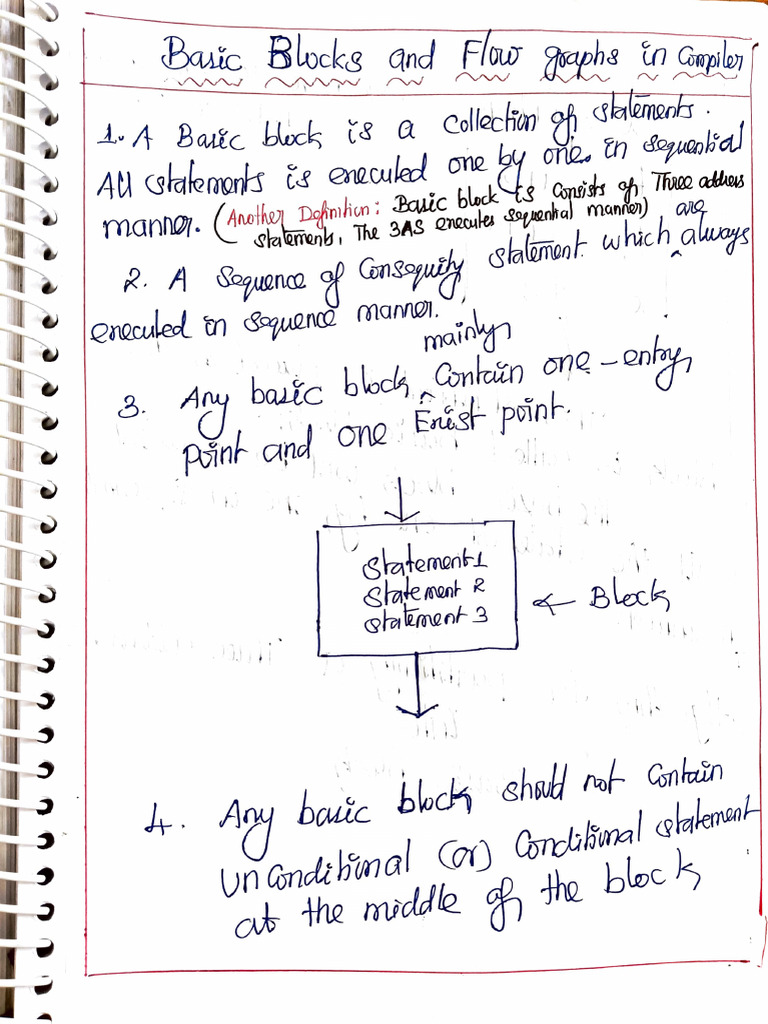 Basic Blocks and Flow graphs in Compiler
1. A Basic block is a collection of statements.
All statements is executed one by one. in sequential
manner. (Another Definition: Basic block is consists of Three address
statements, The 3AS executes sequential manner)
2. A sequence of Consequity statement which are always
executed in sequence manner.
3. Any basic block mainly Contain one-entry
point and one Exist point.
Statement 1
Statement 2
Statement 3
← Block
4. Any basic block should not contain
unconditional (or) conditional statement
at the middle of the block